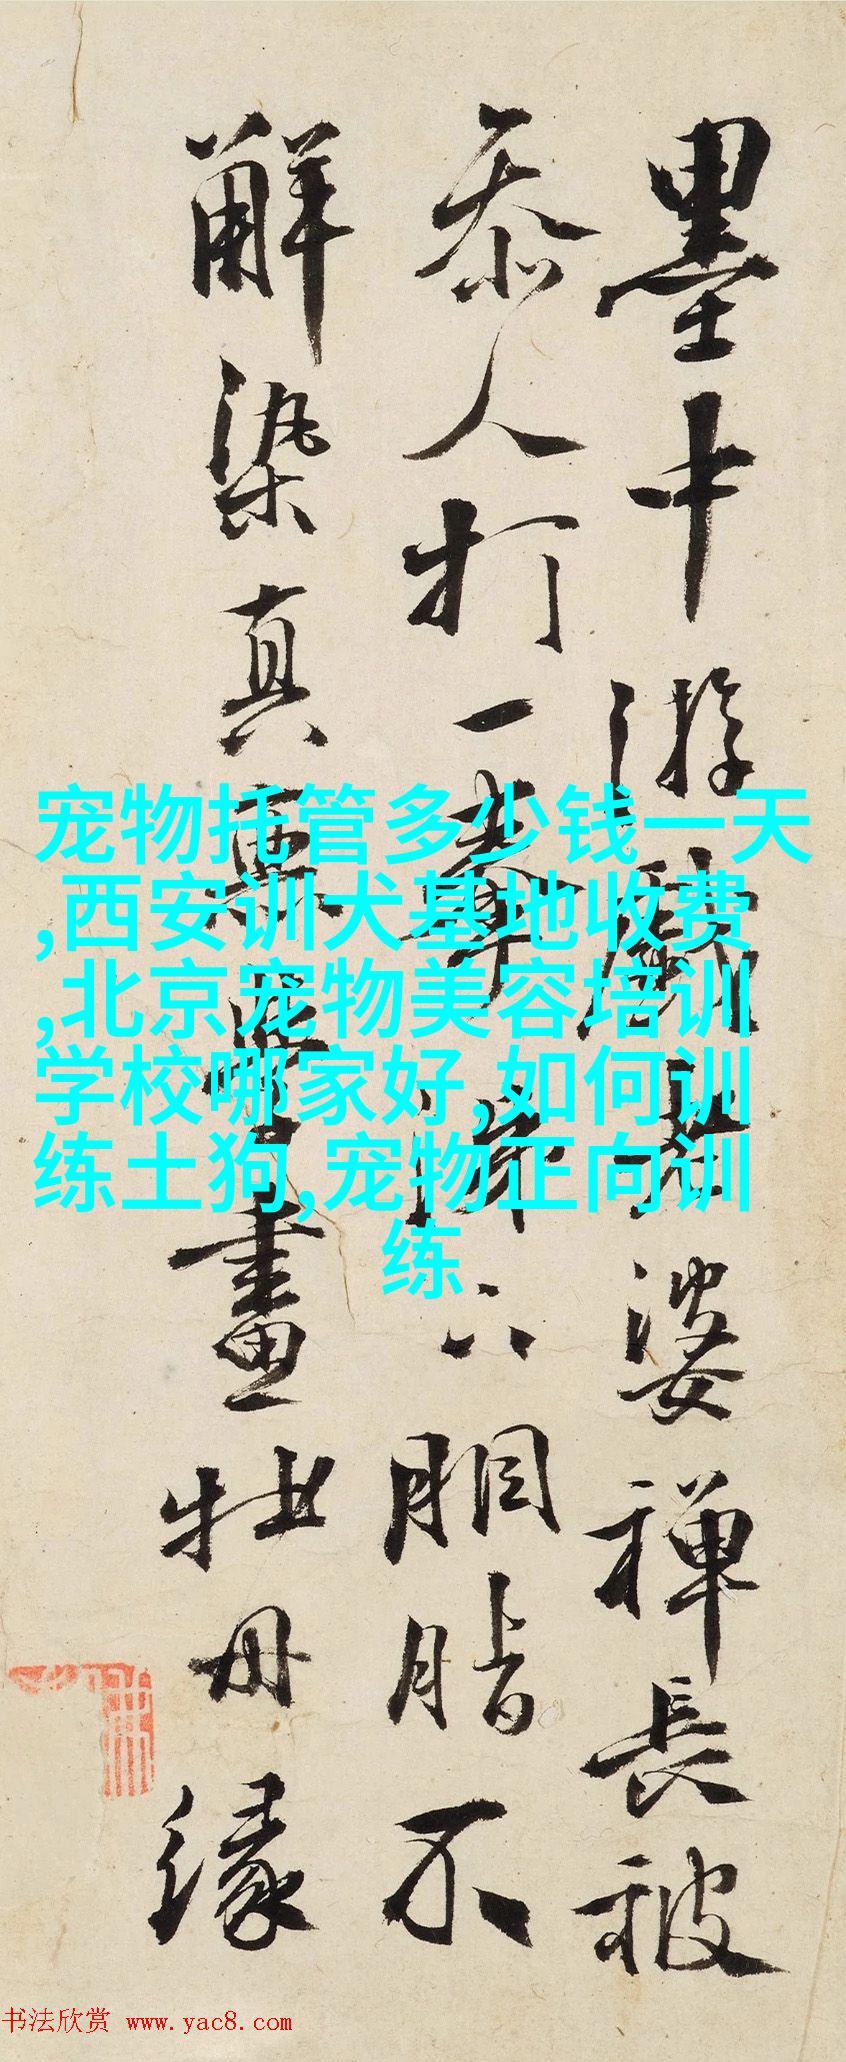 墨中游戲老婆禪長被
參人打一拳涕下胭脂不
解染真無學畫牡丹緣
宠物托管多少钱一天
,西安训犬基地收费
,北京宠物美容培训
学校哪家好,如何训
练土狗,宠物正向训
练
书法欣赏 www.yac8.com